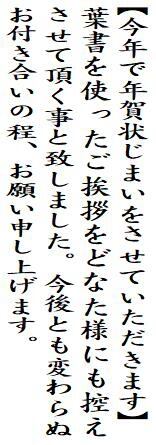 【今年で年賀状じまいをさせていただきます】
葉書を使ったご挨拶をどなた様にも控え
させて頂く事と致しました。今後とも変わらぬ
お付き合いの程、お願い申し上げます。